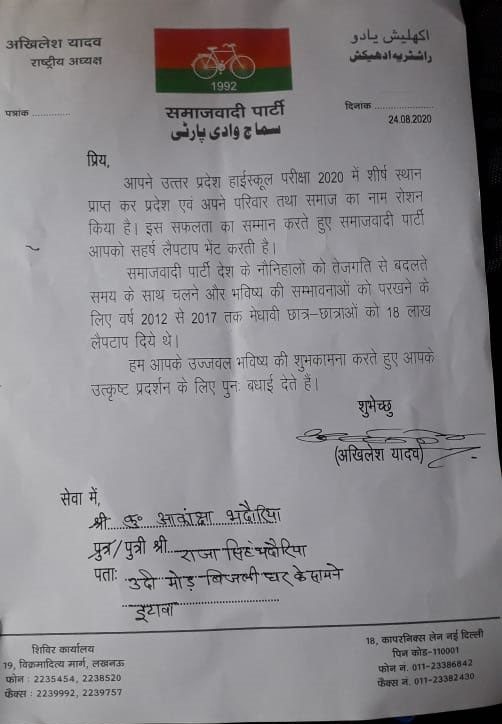 अखिलेश यादव
राष्ट्रीय अध्यक्ष
اکھلیش یادو
راشٹریہ ادھیکش
1992
समाजवादी पार्टी
سماج وادی پارٹی
पत्रांक .............
दिनांक ....................
24.08.2020
प्रिय,
आपने उत्तर प्रदेश हाईस्कूल परीक्षा 2020 में शीर्ष स्थान
प्राप्त कर प्रदेश एवं अपने परिवार तथा समाज का नाम रोशन
किया है। इस सफलता का सम्मान करते हुए समाजवादी पार्टी
आपको सहर्ष लैपटाप भेंट करती है।
समाजवादी पार्टी देश के नौनिहालों को तेजगति से बदलते
समय के साथ चलने और भविष्य की सम्भावनाओं को परखने के
लिए वर्ष 2012 से 2017 तक मेधावी छात्र-छात्राओं को 18 लाख
लैपटाप दिये थे।
हम आपके उज्जवल भविष्य की शुभकामना करते हुए आपके
उत्कृष्ट प्रदर्शन के लिए पुनः बधाई देते हैं।
शुभेच्छु
(अखिलेश यादव)
सेवा में,
श्री कु० आकांक्षा भदौरिया
पुत्र/पुत्री श्री राजा सिंह भदौरिया
पताः उदी मोड़ बिजली घर के सामने
इटावा
शिविर कार्यालय
19, विक्रमादित्य मार्ग, लखनऊ
फोन : 2235454, 2238520
फैक्स : 2239992, 2239757
18, कापरनिक्स लेन नई दिल्ली
पिन कोड-110001
फोन नं. 011-23386842
फैक्स नं. 011-23382430